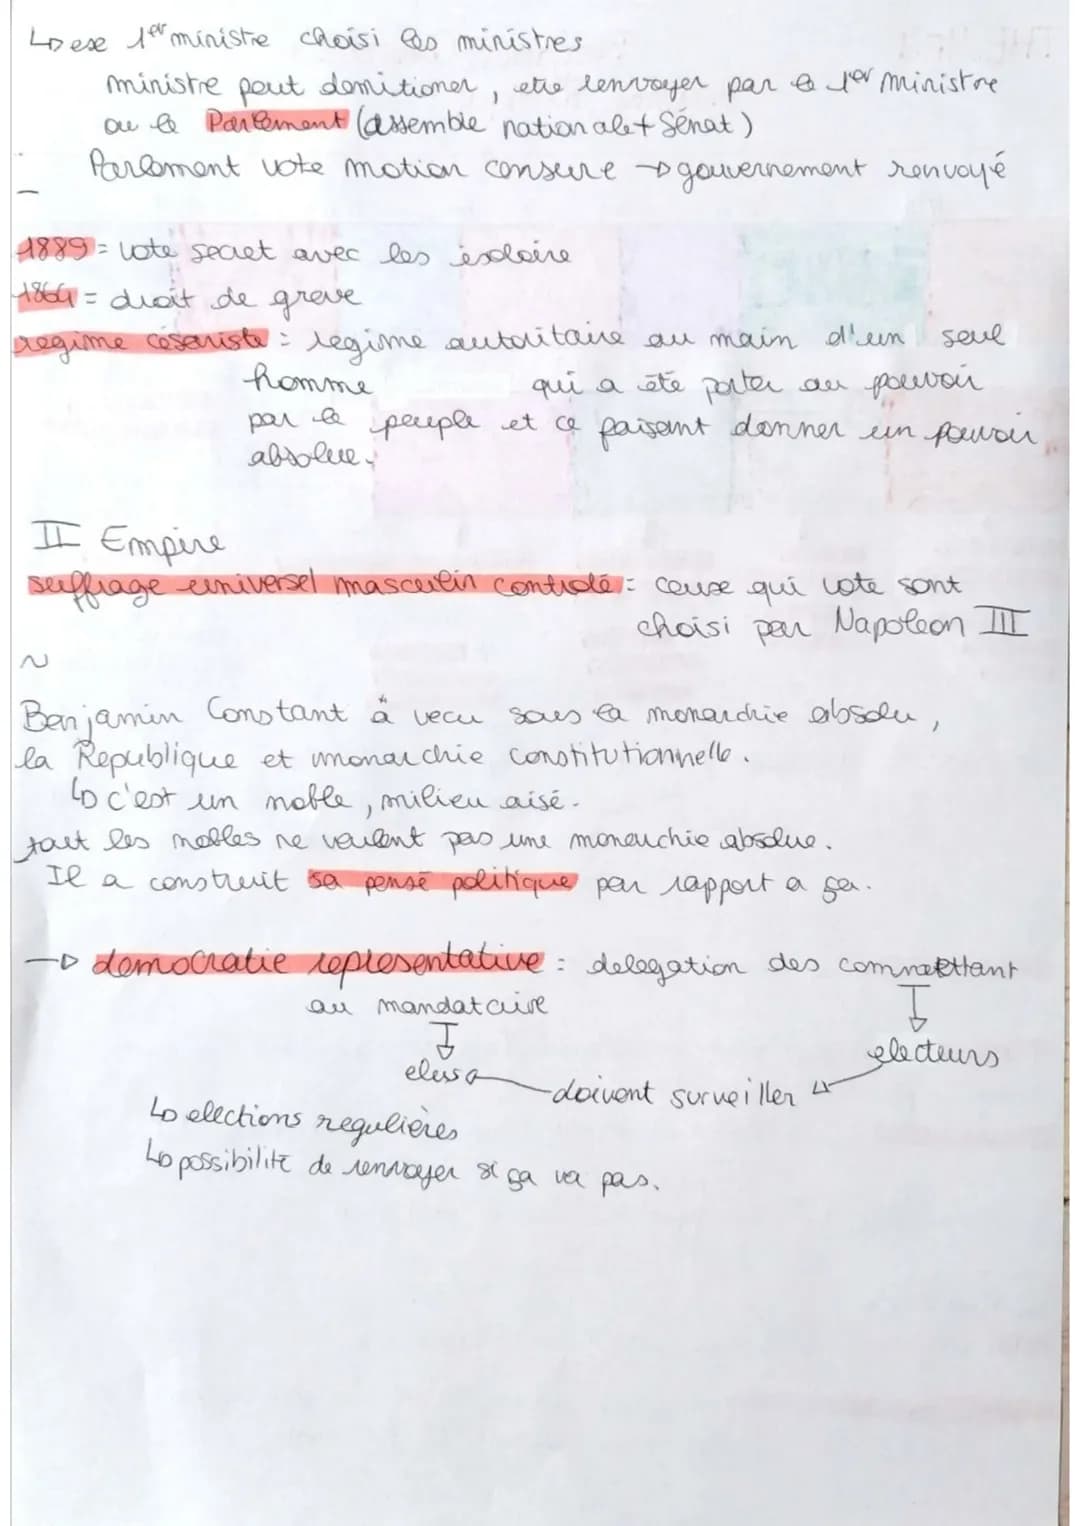 ↳ exe 1er ministre choisi les ministres
ministre peut demitioner, etre renvoyer par le 1er ministre
ou le Parlement (assemble nationale + Sénat)
Parlement vote motion censure → gouvernement renvoyé
1889 = vote secret avec les isoloire
1864 = droit de greve
regime césariste : regime autoritaire au main d'un seul
homme qui a été porter au pouvoir
par le peuple et ce faisant donner un pouvoir
absolue.
II Empire
suffrage universel masculin controlé : ceuse qui vote sont
choisi par Napoleon III
~
Benjamin Constant à vecu sous la monarchie absolu,
la Republique et monarchie constitutionnelle.
↳ c'est un noble, milieu aisé.
tout les nobles ne veulent pas une monarchie absolue.
Il a construit sa pensé politique par rapport a ça.
→ democratie representative : delegation des commettant
au mandataire
↓ ↓
elus electeurs
doivent surveiller
↳ elections regulières
↳ possibilité de renvoyer si ça va pas.